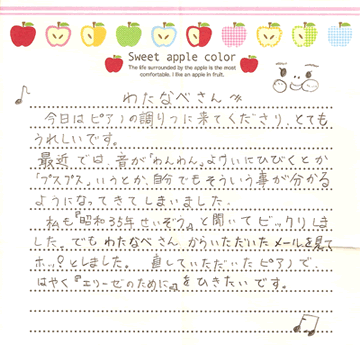 Sweet apple color
The life surrounded by the apple is the most
comfortable. I like an apple in fruit.
わたなべさん
今日はピアノの調りつに来てくださり、とても
うれしいです。
最近では、音が「わんわん」よけいにひびくとか
「プスプス」いうとか、自分でもそういう事が分かる
ようになってきてしまいました。
私も『昭和35年せいぞう』と聞いてビックリしま
した。でもわたなべさんからいただいたメールを見て
ホッとしました。直していただいたピアノで、
はやく『エリーゼのために』をひきたいです。